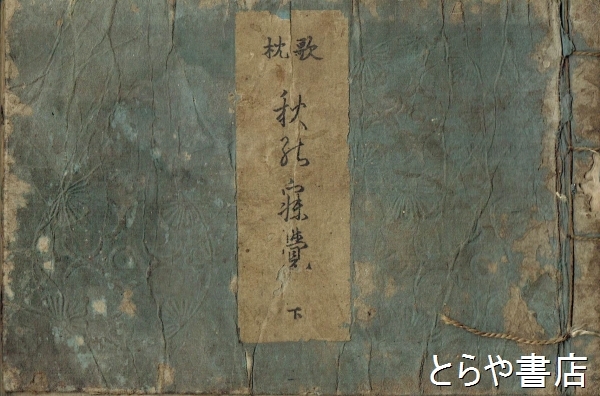 歌枕
秋能寐覚
下
とらや書店